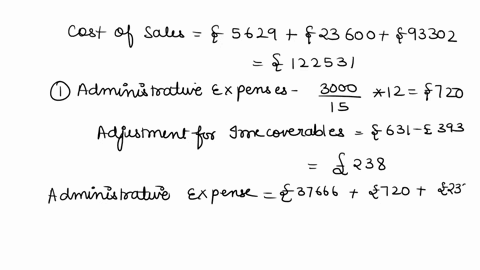 Cost of Sales = £ 5629 + £23600 + £93302
= £ 122531
① Administrative Expenses - 3000/15 *12 = £720
Adjustment for Irrecoverables = £631-£393
= £238
Administrative Expense = £37666 + £720 +